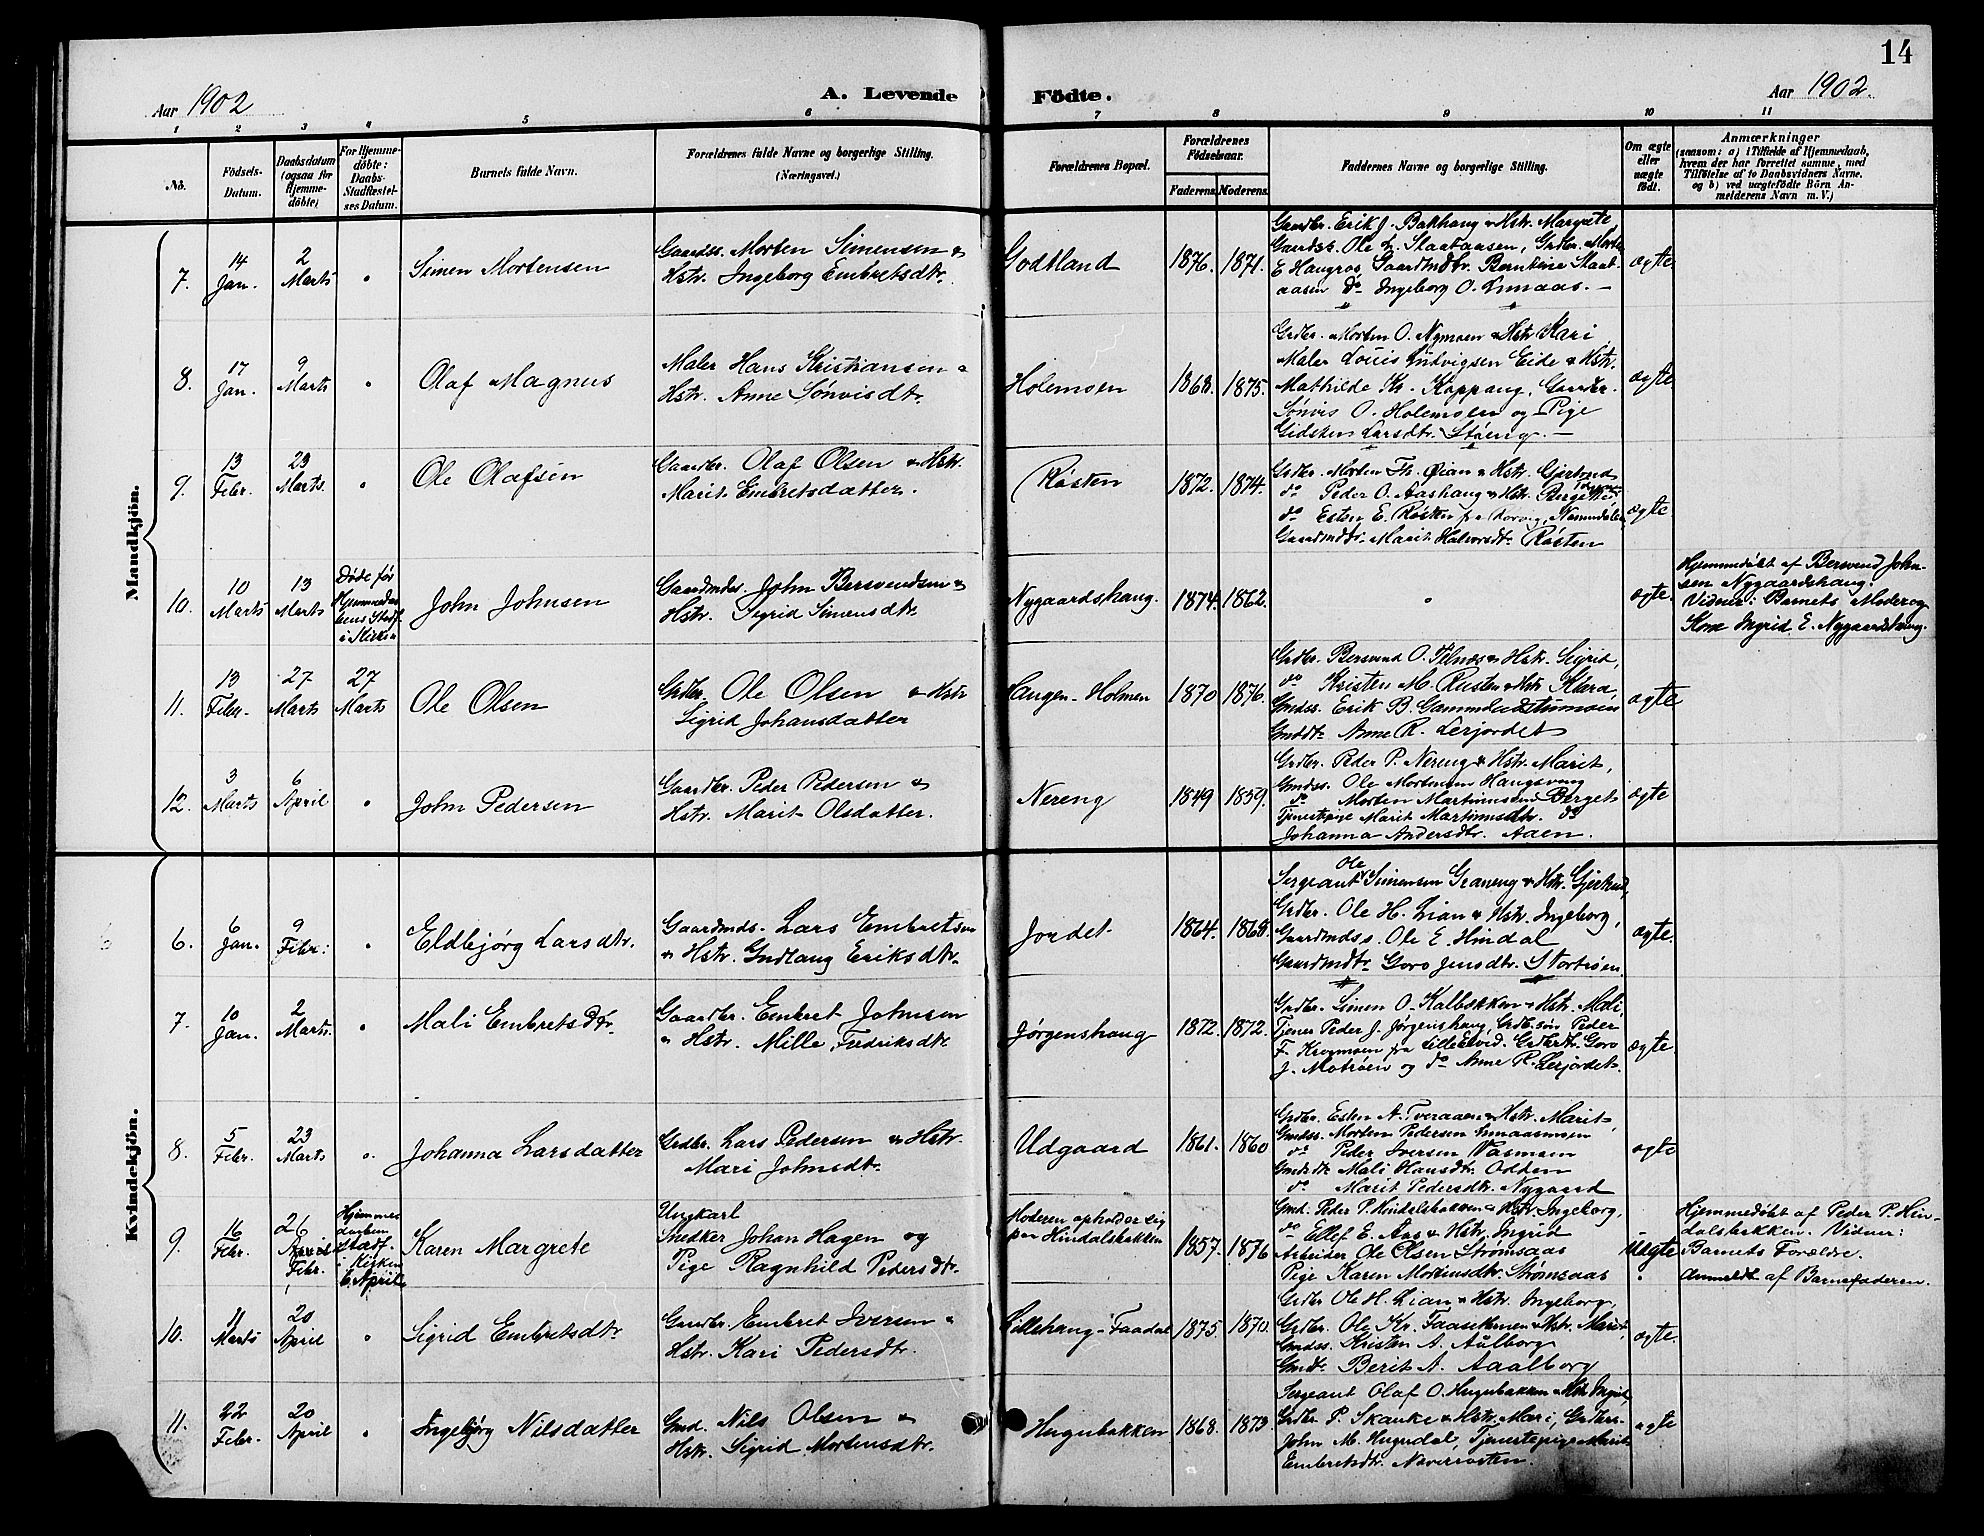 14
Aar 1902
A. Levende
Födte.
Aar 1902.
1 2 3 4 5 6 7 8 9 10 11
No.
Födsels-
Datum.
Daabsdatum
(ogsaa for
Hjemme-
döbte)
For Hjemme-
döbte:
Daabs-
Stadfæstel-
ses Datum.
Barnets fulde Navn.
Forældrenes fulde Navne og borgerlige Stilling.
(Næringsvei.)
Forældrenes Bopæl.
Forældrenes
Födselsaar.
Faderens.
Moderens.
Faddernes Navne og borgerlige Stilling.
Om ægte
eller
uægte
født.
Anmærkninger
(saasom: a) i Tilfælde af Hjemmedaab,
hvem der har forrettet samme, med
Tilföielse af to Daabsvidners Navne,
og b) ved uægtefödte Börn An-
melderens Navn m. V.)
Mandkjön.
7.
14
Jan.
2
Marts
"
Simen Mortensen
Gaardss. Morten Simensen &
Hstr. Ingeborg Embretsdtr.
Godtland
1876.
1871.
Gaardbr. Erik J. Bakhaug & Hstr. Margrete
Gaardss. Ole L. Staataasen, Grdbr. Morten
E. Haugros, Gaardmdtr. Berntine Staat-
aasen do Ingeborg O. Lmaas. —
ægte
8.
17
Jan.
9
Marts
"
Olaf Magnus
Maler Hans Kristiansen &
Hstr. Anne Sønvisdtr.
Holemoen
1868.
1875.
Grdbr. Morten O. Nymoen & Hstr Kari
Maler Louis Ludvigsen Eide & Hstr.
Mathilde Kr. Koppang, Gaardbr.
Sønvis O. Holemoen og Pige
Gidsken Larsdtr. Støeng. —
ægte
9.
13
Febr.
23
Marts.
"
Ole Olafsen
Gaardbr. Olaf Olsen & Hstr.
Marit Embretsdatter.
Røsten
1872.
1874.
Grdbr. Morten Th. Øian & Hstr. Gjertrud
do Peder O. Aashaug & Hstr. Bergitte,
do Esten E. Røsten fra Norvig, Nammdalen
Gaardmdtr. Marit Halvorsdtr. Røsten
ægte
10.
10
Marts
13
Marts
Døde før
Hjemmedaa-
bens Stadf.
i Kirken
John Johnsen
Gaardmds. John Bersvendsen &
Hstr. Sigrid Simensdtr.
Nygaardshaug.
1874.
1862.
"
ægte.
Hjemmedøbt af Bersvend John-
sen Nygaardshaug.
Vidner: Barnets Moder og
Kone Ingrid E. Nygaardshaug.
11.
13
Febr.
27
Marts
27
Marts
Ole Olsen
Grdbr. Ole Olsen & Hstr
Sigrid Johansdatter
Haugen-Holmen
1870
1876.
Grdbr. Bersvend O. Telnæs & Hstr. Sigrid,
do Kristen M. Rusten & Hstr. Klara,
Gmdss. Erik B. Gammelstumoen
Gmddtr Anne R. Lerjordet
ægte
12.
3
Marts
6
April
"
John Pedersen
Gaardbr. Peder Pedersen &
Hstr. Marit Olsdatter.
Nereng
1849
1859.
Grdbr. Peder P. Nereng & Hstr. Marit,
Gmdss. Ole Mortensen Haugsvang
do Morten Martinussen Berget
Tjenestpige Marit Martinusdtr. do
Johanna Andersdtr. Aaen.
ægte
Kvindekjön.
6.
6
Jan.
9
Febr.
"
Eldbjørg Larsdtr.
Gaardmds. Lars Embretsen
& Hstr. Gudlaug Eriksdtr.
Jordet
1864.
1868.
Ole
Sergeant Simensen Graneng & Hstr. Gjertrud,
Grdbr. Ole H. Lian & Hstr. Ingeborg,
Gaardmdss. Ole E. Hindal
Gaardmdtr. Goro Jensdtr. Stortrøen.
ægte.
7.
10
Jan.
2
Marts.
"
Mali Embretsdtr.
Gaardbr. Embret Johnsen
& Hstr. Mille Fredriksdtr.
Jørgenshaug
1872.
1872.
Grdbr. Simen O. Kalbækken & Hstr. Mali,
Tjener Peder J. Jørgenshaug, Grdb.søn Peder
F. Krogmoen fra Lilleelvd. Grdbrdtr. Goro
J. Motrøen og do Anne R. Lerjordet.
ægte.
8.
5
Febr.
23
Marts
"
Johanna Larsdatter
Grdbr. Lars Pedersen & Hstr.
Mari Johnsdtr.
Udgaard
1861.
1860
Grdbr. Esten A. Tveraaen & Hstr. Marit,
Gmdss. Morten Pedersen Lmaasmoen
do Peder Iversen Vasmoen
Gmdsdtr Mali Hansdtr. Odden
do Marit Pedersdtr. Nygaard
ægte
9.
16
Febr.
26
Febr.
Hjemme-
daaben
Stadf.
i Kirken
6 April
Karen Margrete
Ungkarl
Snedker Johan Hagen og
Pige Ragnhild Pedersdtr.
Moderen opholder sig
paa Hindalsbakken
1857.
1876
Gmd. Peder P. Hindalsbakken & Hstr. Ingeborg,
do Ellef E. Aas & Hstr. Ingrid
Arbeider Ole Olsen Strømsaas
Pige Karen Mortensdtr. Strømsaas
Uægte
Hjemmedøbt af Peder P. Hin-
dalsbakken. Vidner:
Barnets Forældre.
Anmeldt af Barnefaderen.
10.
11
Marts
20
April
"
Sigrid Embretsdtr
Gaardbr. Embret Iversen &
Hstr. Kari Pedersdtr.
Lillehaug-Faadal
1875.
1870.
Grdbr Ole H. Lian & Hstr. Ingeborg,
Grdbr. Ole Kr. Faasekmoen & Hstr. Marit,
Gmdss. Kristen A. Aalborg
Gmdt. Berit A. Aaalborg
ægte.
11.
22
Febr.
20
April
"
Ingebjørg Nilsdatter
Gmd. Nils Olsen &
Hstr. Sigrid Mortensdtr.
Hugubakken
1868.
1873.
Sergeant Olaf O. Hugubakken & Hstr Ingrid,
Grdbr. P. Skanke & Hstr. Mari, Grdbrs.
John M. Hugudal, Tjenestepige Marit
Embretsdtr. Næverrosten.
ægte